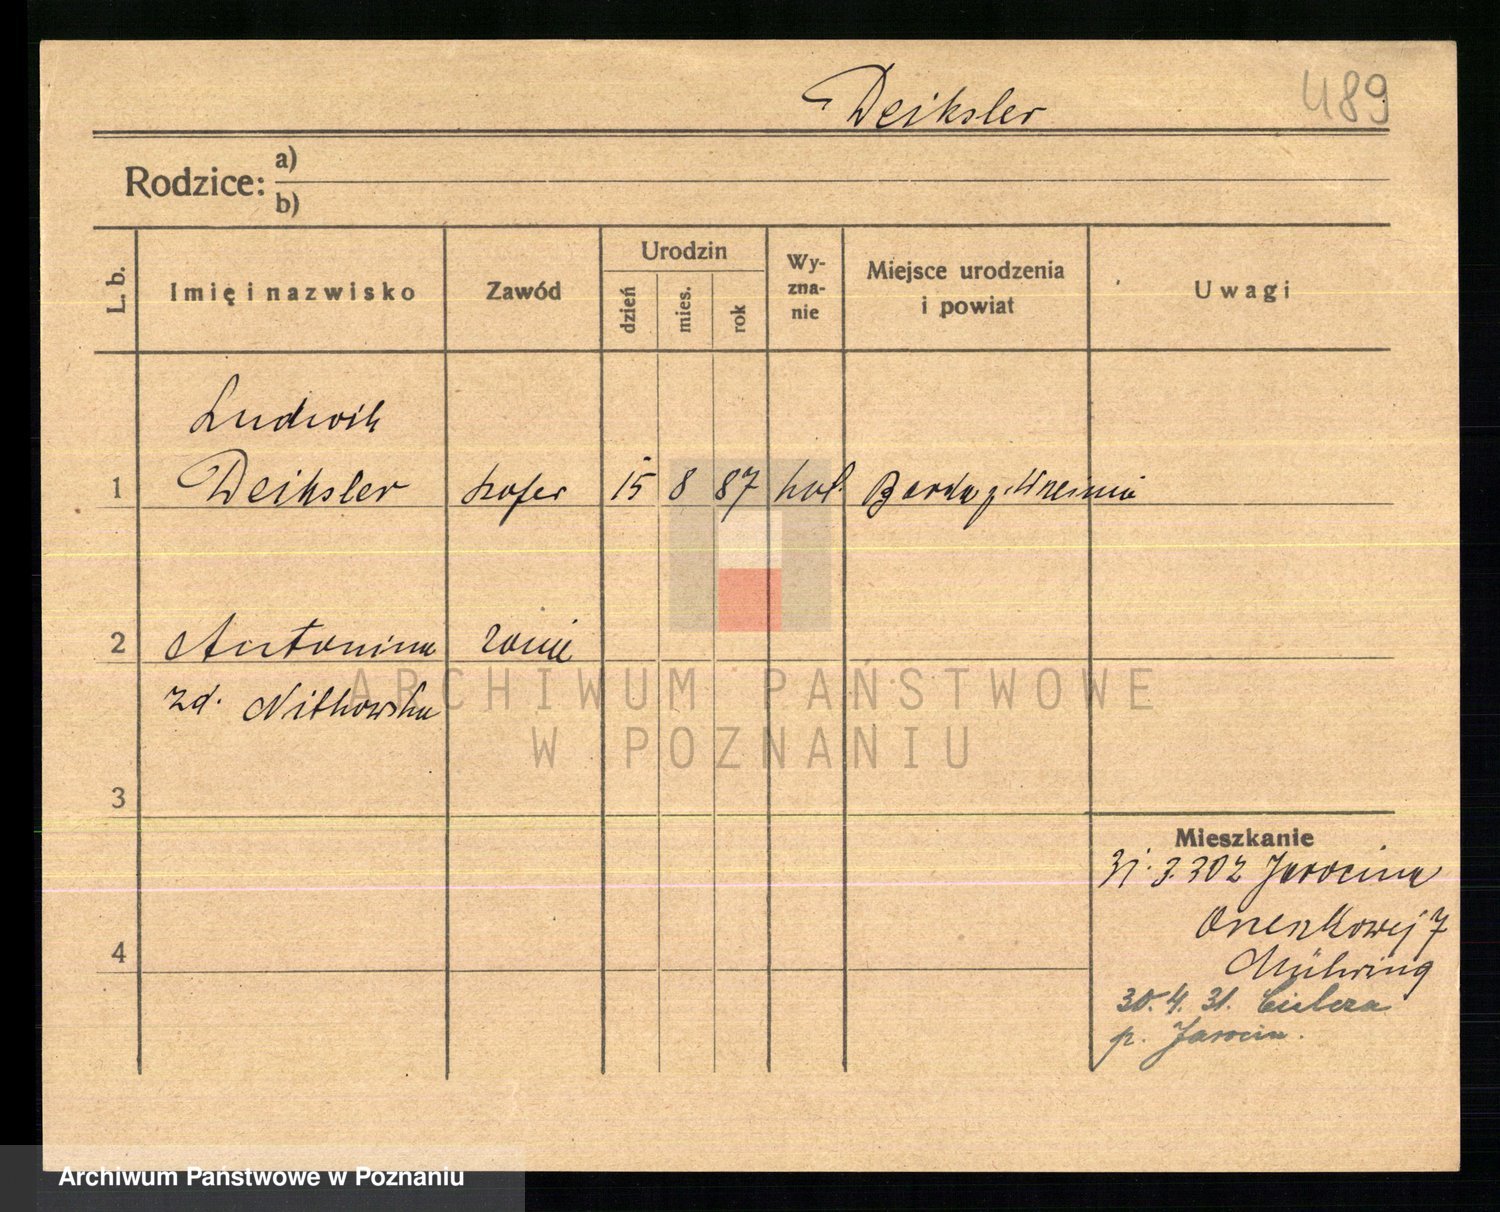 Deiksler
489
Rodzice: a)
b)
L. b.
Imię i nazwisko
Zawód
Urodzin
dzień
mies.
rok
Wy-
zna-
nie
Miejsce urodzenia
i powiat
Uwagi
Ludwik
1 Deiksler szofer 15 8 87 kat. Bardo p. Września
2 Antonina żona
zd. Nitkowska
3
4
Mieszkanie
31. 3. 30 z Jarocina
7
Mühring
30. 4. 31.
p. Jarocin.
ARCHIWUM PAŃSTWOWE
W POZNANIU
Archiwum Państwowe w Poznaniu